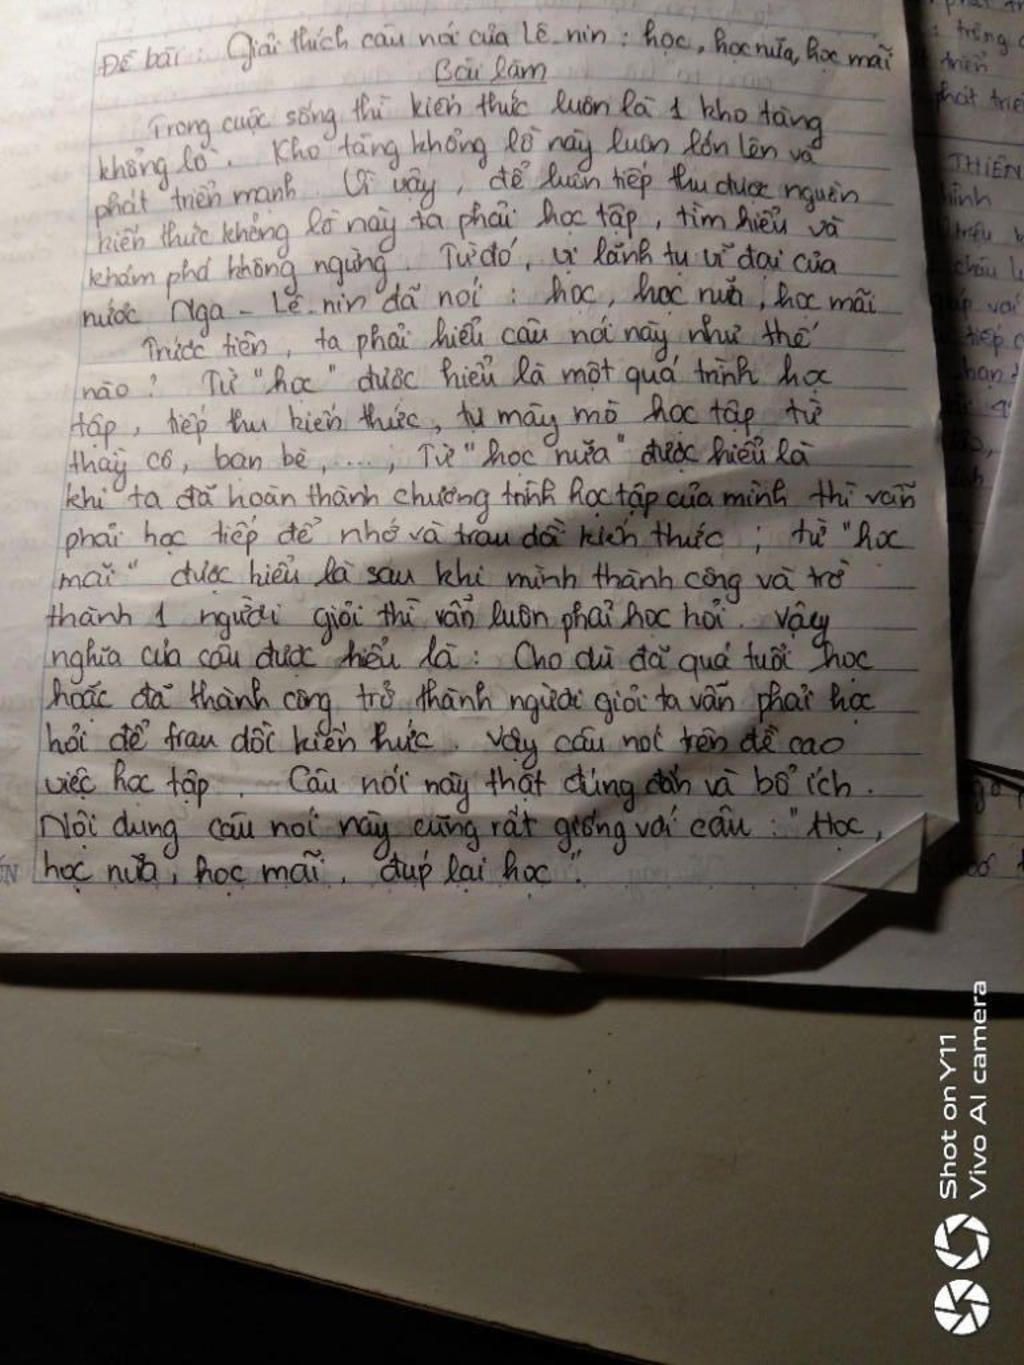 Đề bài : Giải thích câu nói của Lê-nin : học, học nữa, học mãi
Bài làm
Trong cuộc sống thì kiến thức luôn là 1 kho tàng
khổng lồ. Kho tàng khổng lồ này luôn lớn lên và
phát triển mạnh. Vì vậy, để luôn tiếp thu được nguồn
kiến thức khổng lồ này ta phải học tập, tìm hiểu và
khám phá không ngừng. Từ đó, vị lãnh tụ vĩ đại của
nước Nga - Lê-nin đã nói : học, học nữa, học mãi
Trước tiên, ta phải hiểu câu nói này như thế
nào? Từ "học" được hiểu là một quá trình học
tập, tiếp thu kiến thức, tự mày mò học tập từ
thầy cô, bạn bè, ...; Từ "học nữa" được hiểu là
khi ta đã hoàn thành chương trình học tập của mình thì vẫn
phải học tiếp để nhớ và trau dồi kiến thức ; từ "học
mãi" được hiểu là sau khi mình thành công và trở
thành 1 người giỏi thì vẫn luôn phải học hỏi. Vậy
nghĩa của câu được hiểu là : Cho dù đã quá tuổi học
hoặc đã thành công trở thành người giỏi ta vẫn phải học
hỏi để trau dồi kiến thức. Vậy câu nói trên đề cao
việc học tập. Câu nói này thật đúng đắn và bổ ích.
Nội dung câu nói này cũng rất giống với câu : "Học,
học nữa, học mãi, đúp lại học".
THIÊN
Shot on Y11
Vivo AI camera